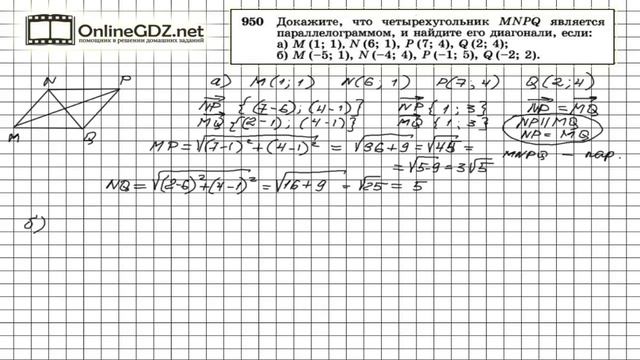 OnlineGDZ.net
ПОМОЩНИК В РЕШЕНИИ ДОМАШНИХ ЗАДАНИЙ
950 Докажите, что четырехугольник MNPQ является
параллелограммом, и найдите его диагонали, если:
а) M (1; 1), N (6; 1), P (7; 4), Q (2; 4);
б) M (−5; 1), N (−4; 4), P (−1; 5), Q (−2; 2).
N P
M Q
а) M(1; 1) N(6; 1) P(7; 4) Q(2; 4)
NP {(7-6); (4-1)} NP {1; 3} NP = MQ
MQ {(2-1); (4-1)} MQ {1; 3} NP || MQ
NP = MQ
MP = √(7-1)²+(4-1)² = √36+9 = √45 =
= √5·9 = 3√5
MNPQ — пар.
NQ = √(2-6)²+(4-1)² = √16+9 = √25 = 5
б)